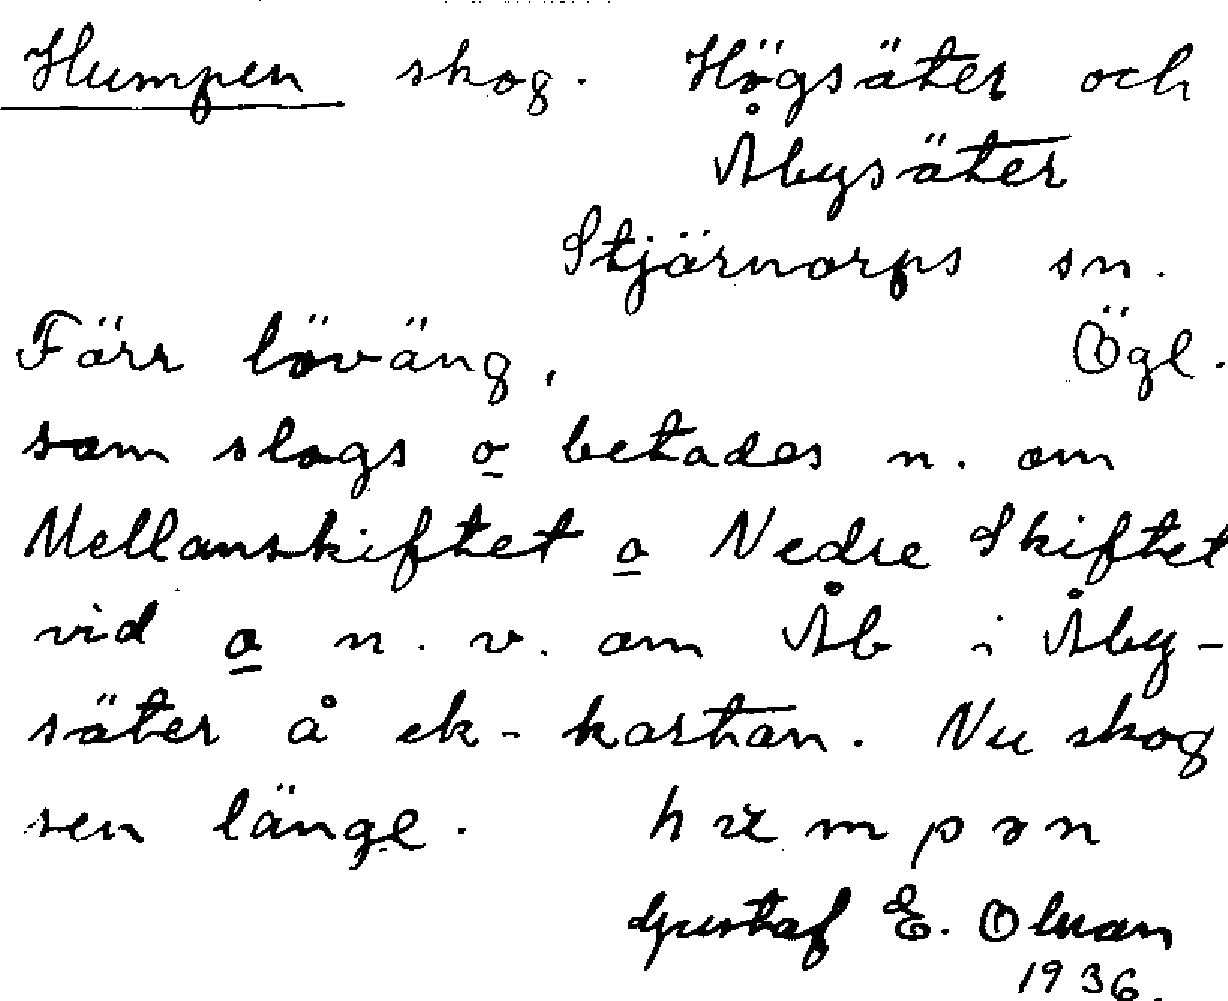 Humpen skog. Högsäter och
Åbysäter
Stjärnorps sn.
Färr löväng, Ögl.
som slogs o betades n. om
Mellanskiftet o Nedre Skiftet
vid o n. v. om Åb i Åby-
säter å ek-kartan. Nu skog
sen länge. mpən
Gustaf E. Olson
1936.